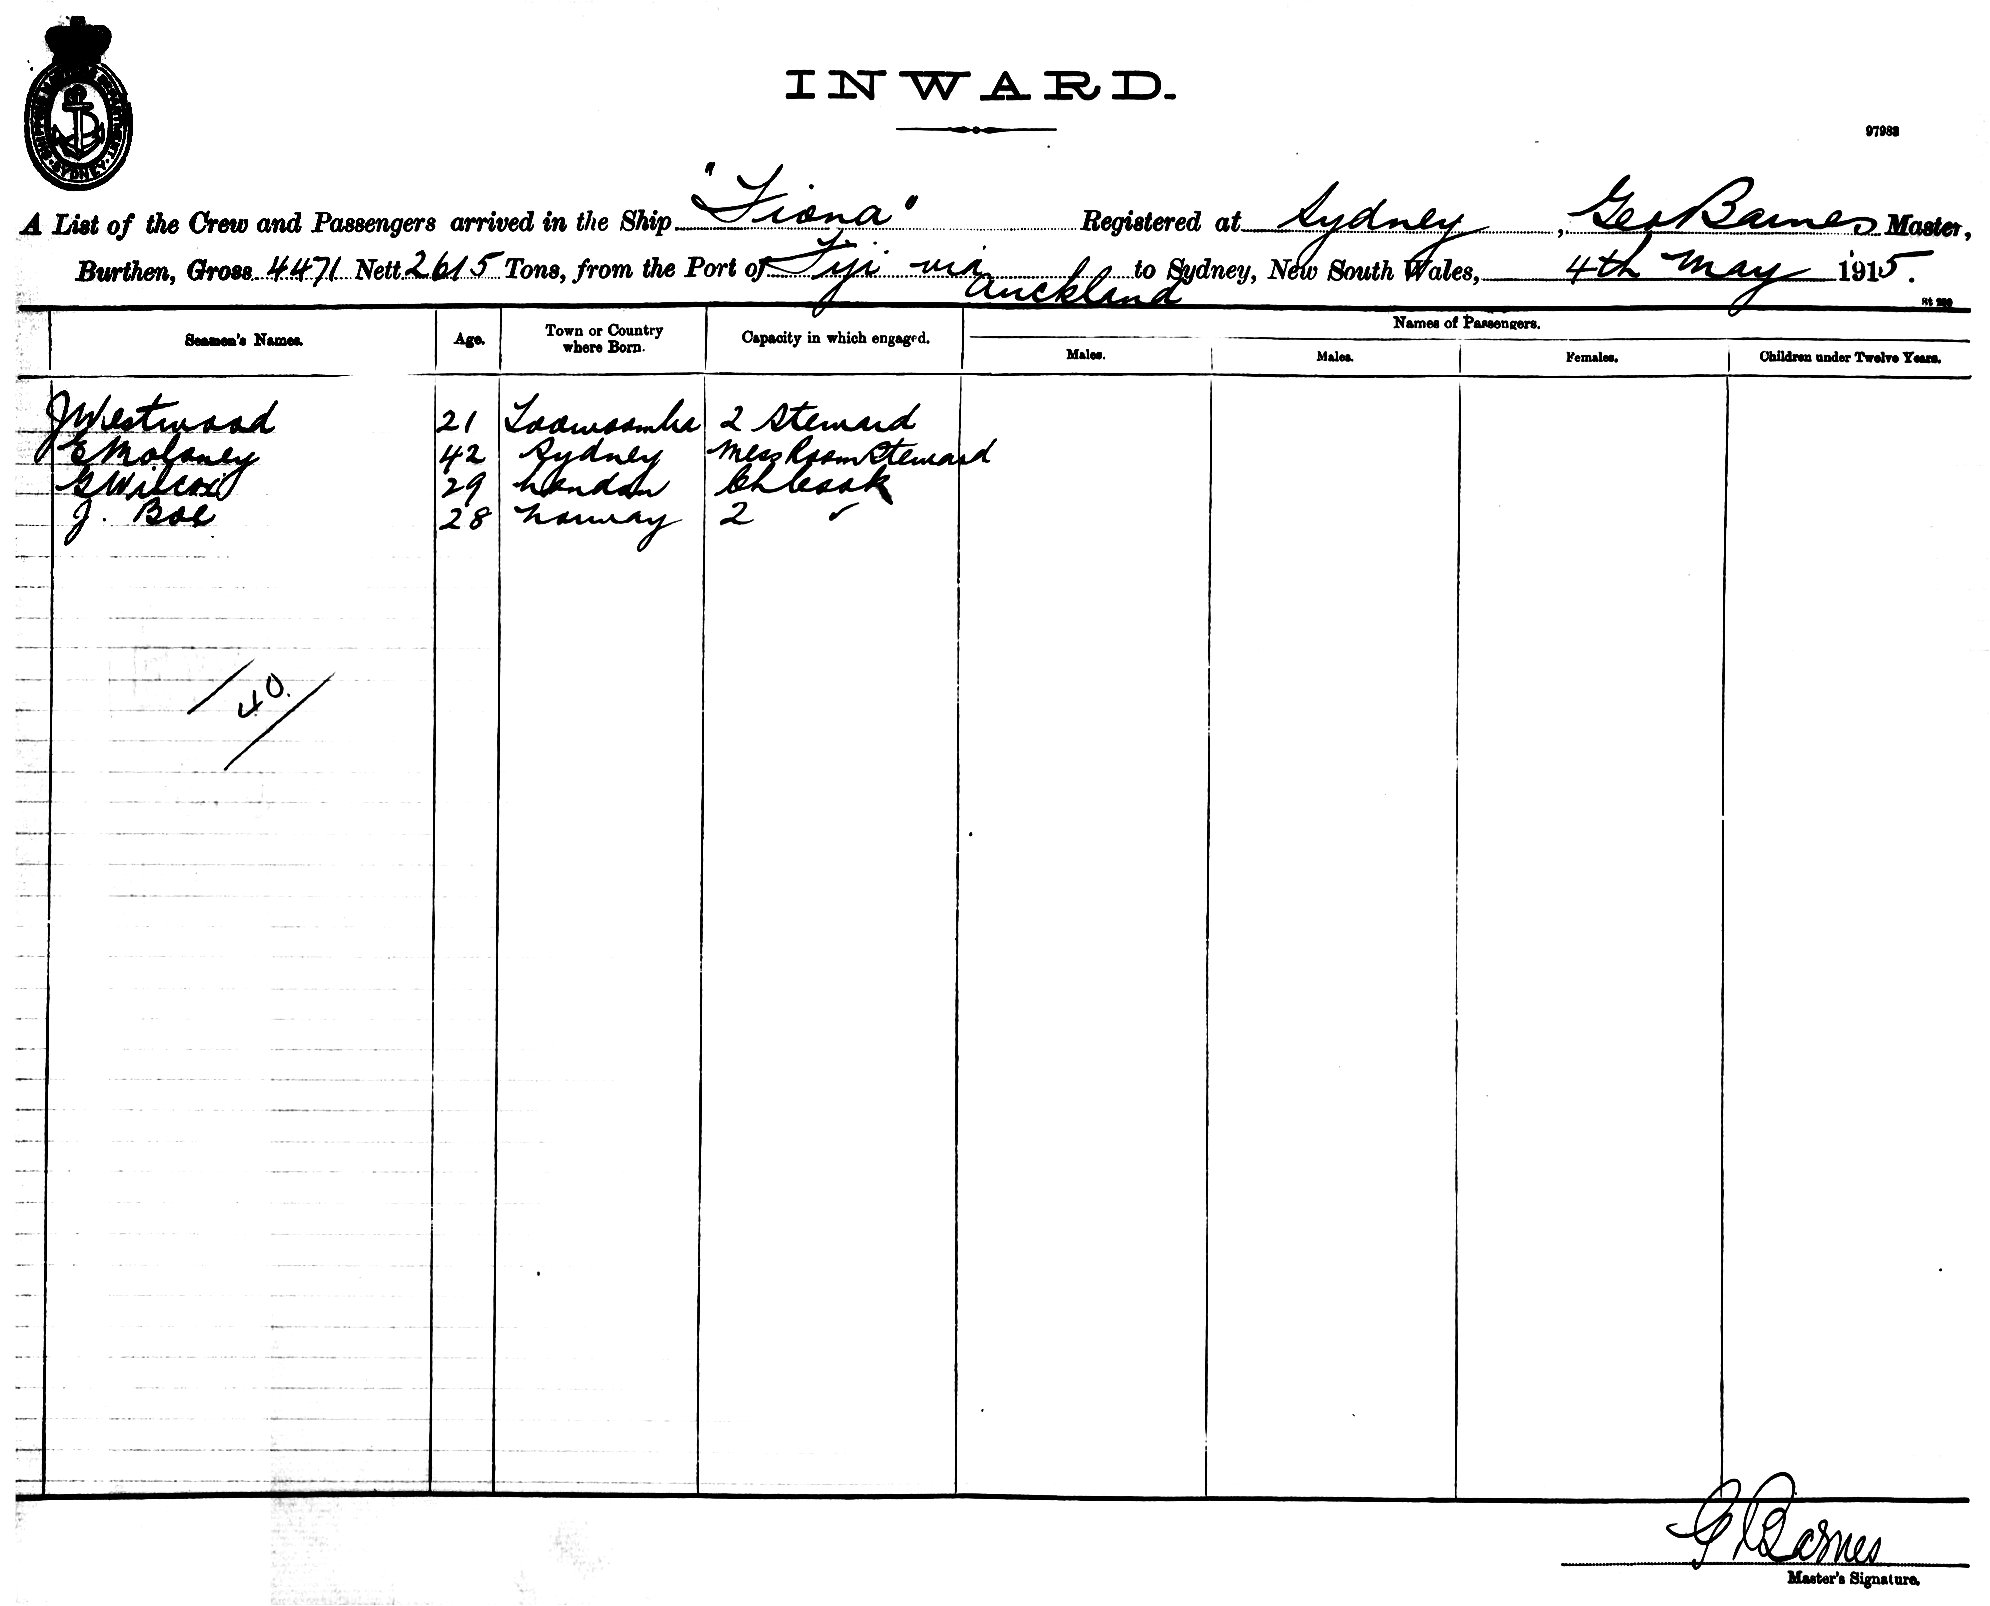 INWARD.
97983
A List of the Crew and Passengers arrived in the Ship "Fiona" Registered at Sydney, Geo Barnes Master,
Burthen, Gross 4471 Nett 2615 Tons, from the Port of Fiji via Auckland to Sydney, New South Wales, 4th May 1915.
Seamen's Names. Age. Town or Country where Born. Capacity in which engaged. Names of Passengers.
Males. Males. Females. Children under Twelve Years.
J Westwood 21 Toowoomba 2 Steward
E Moloney 42 Sydney Mess Room Steward
G Wilcox 29 London Ch Cook
J. Boe 28 Norway 2 "
40.
G Barnes
Master's Signature.